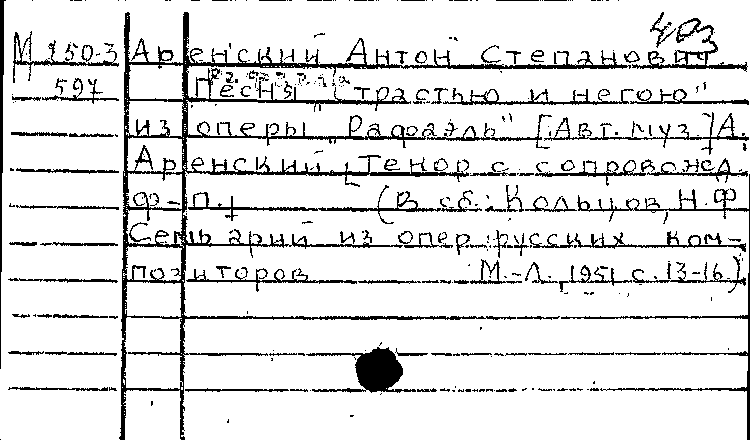 403
М 250-3 Аренский Антон Степанович.
597 Песнь "Страстью и негою"
из оперы "Рафаэль" [Авт. муз.] А.
Аренский [Тенор с сопровожд.
ф-п.] (В сб.: Кольцов, Н.Ф
Семь арий из опер русских ком-
позиторов М.-Л., 1951 с. 13-16)